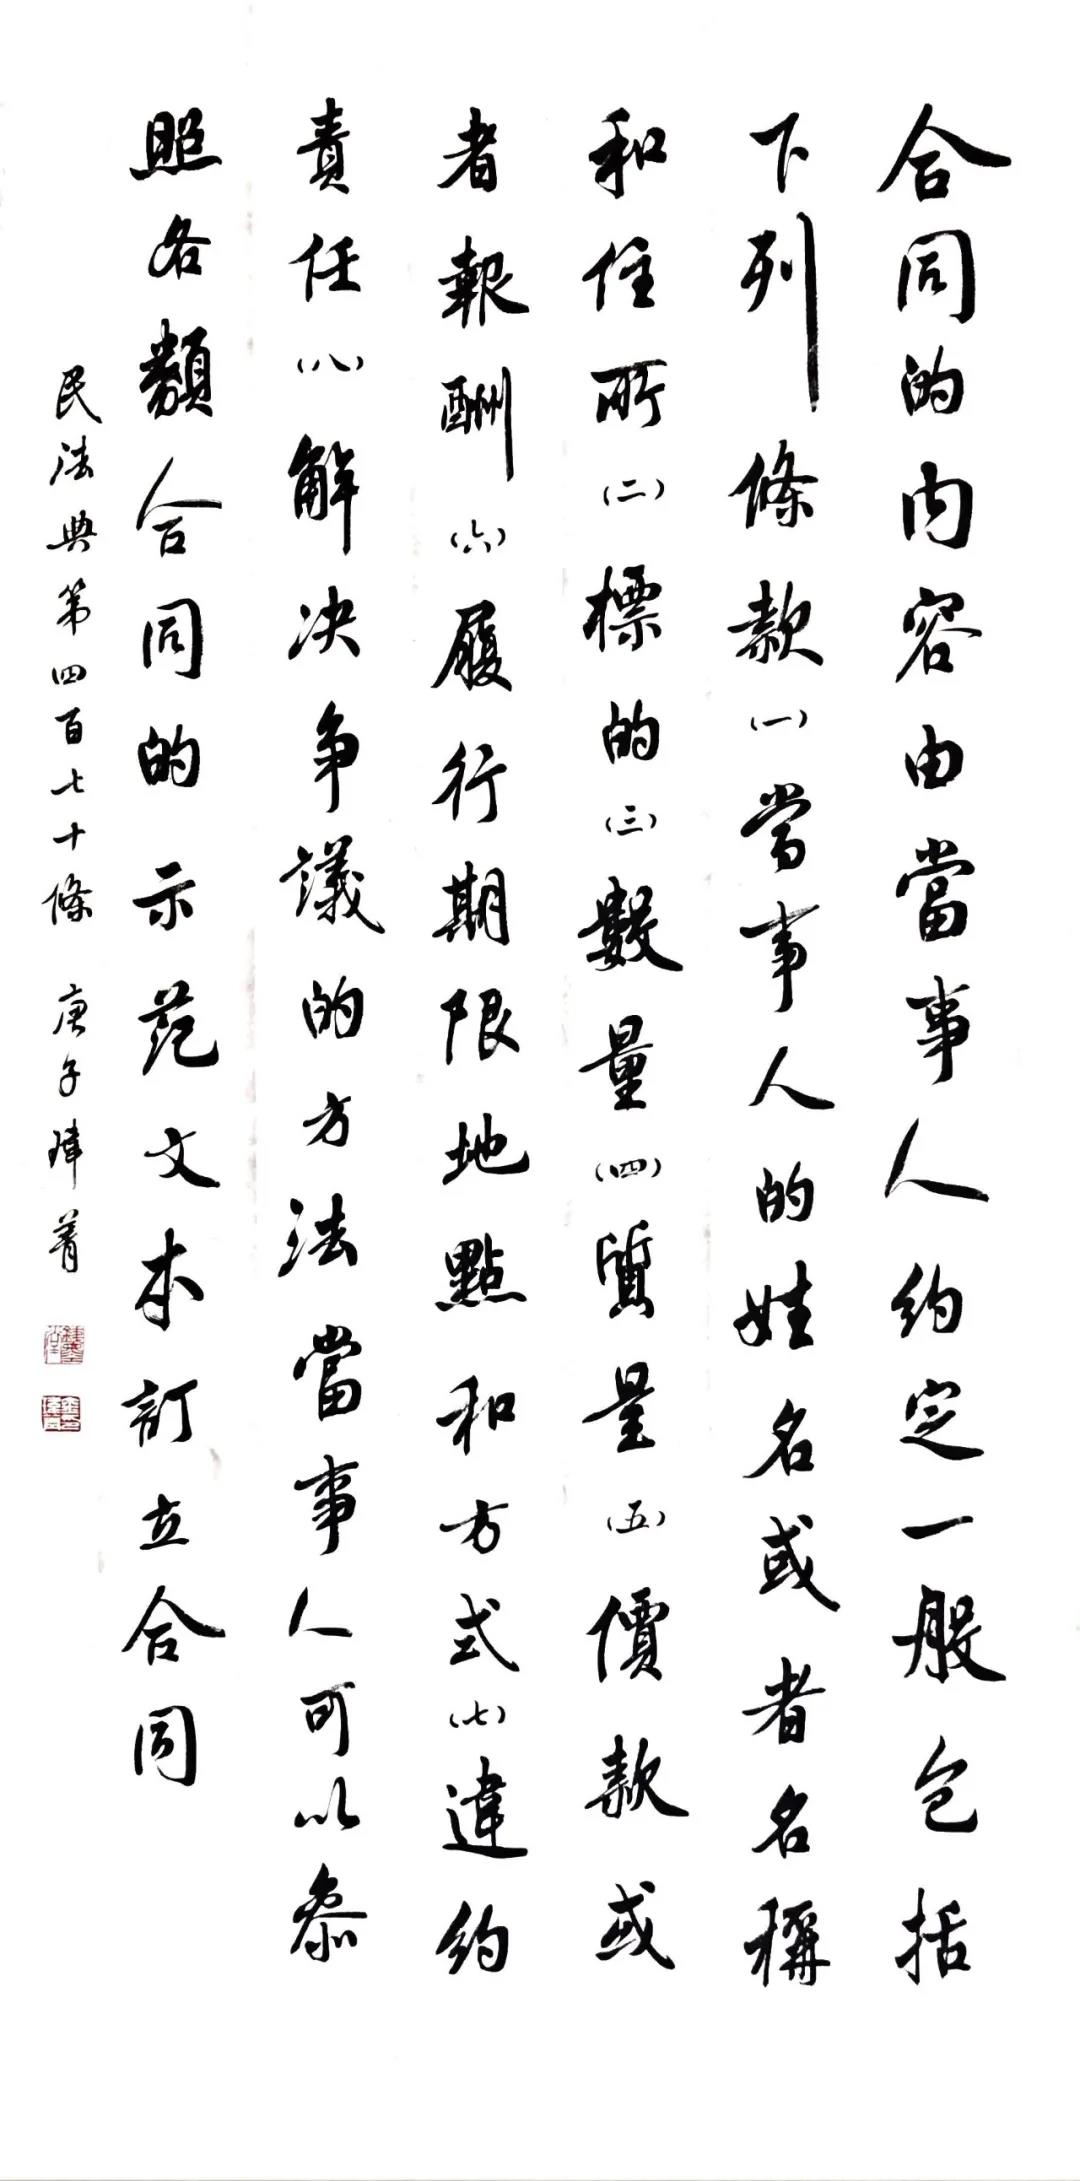 合同的内容由當事人約定一般包括
下列條款(一)當事人的姓名或者名稱
和住所(二)標的(三)數量(四)質量(五)價款或
者報酬(六)履行期限地點和方式(七)違約
責任(八)解决争議的方法當事人可以參
照各類合同的示范文本訂立合同
民法典第四百七十條 庚子瑋菁